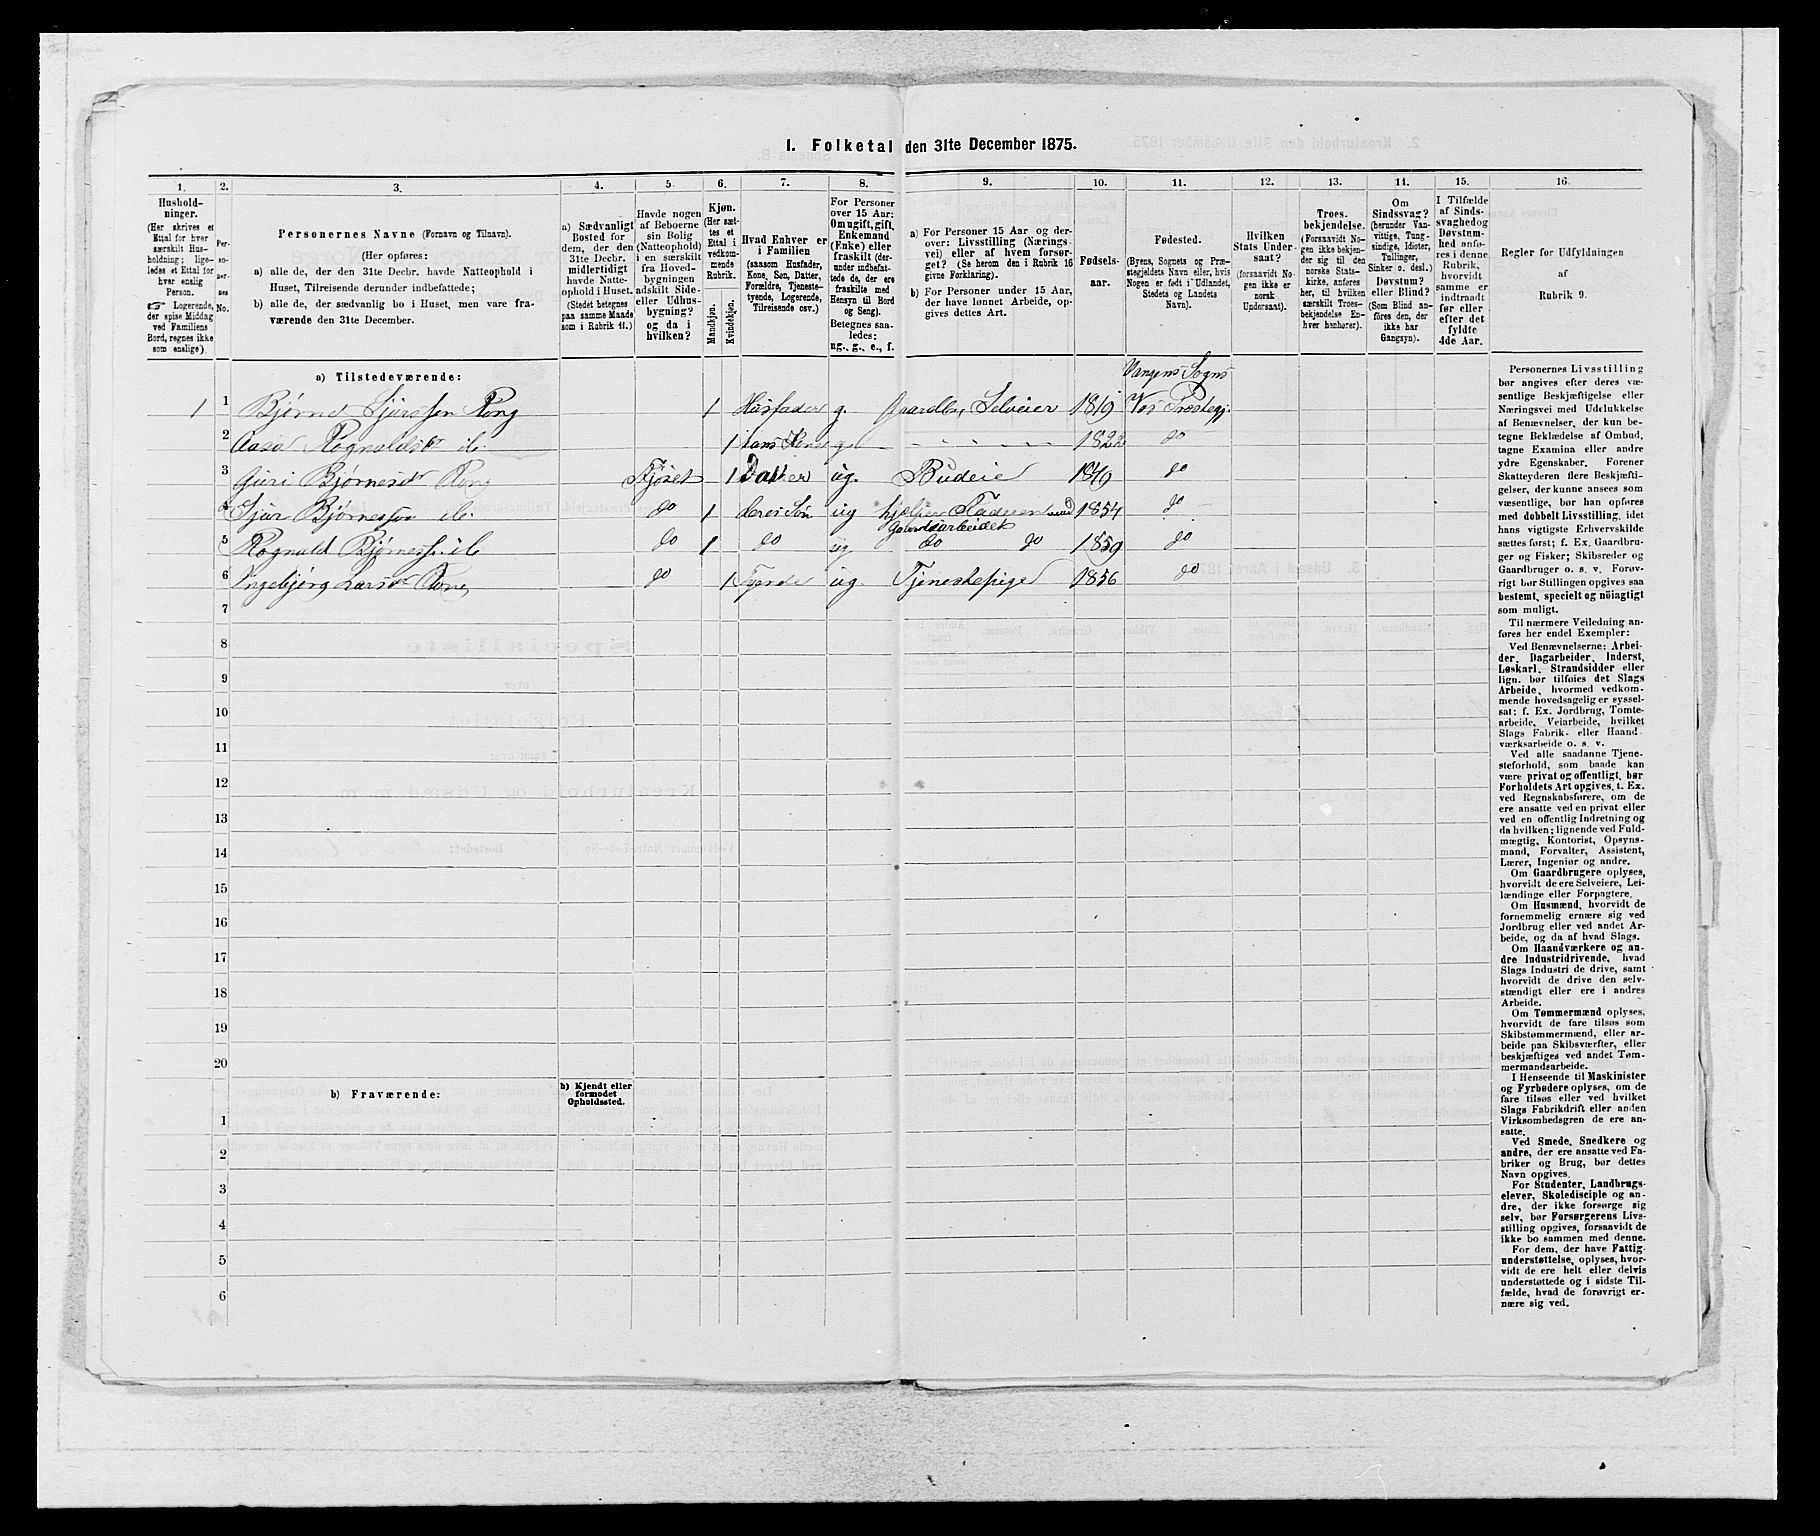 1. Folketal den 31te December 1875.
1. 2. 3. 4. 5. 6. 7. 8. 9. 10. 11. 12. 13. 14. 15. 16.
Hushold-
ninger.
(Her skrives et
Ettal for hver
særskilt Hus-
holdning; lige-
ledes et Ettal for
hver enslig
Person.
☞ Logerende,
der spise Middag
ved Familiens
Bord, regnes ikke
som enslige).
Per-
so-
ner-
nes
No.
Personernes Navne (Fornavn og Tilnavn).
(Her opføres:
a) alle de, der den 31te Decbr. havde Natteophold i
Huset, Tilreisende derunder indbefattede;
b) alle de, der sædvanlig bo i Huset, men vare fra-
værende den 31te December.
a) Sædvanligt
Bosted for
dem, der den
31te Decbr.
midlertidigt
havde Natte-
ophold i Huset.
(Stedet betegnes
paa samme Maade
som i Rubrik 11.)
Havde nogen
af Beboerne
sin Bolig
(Natteophold)
i en særskilt
fra Hoved-
bygningen
adskilt Side-
eller Udhus-
bygning?
og da i
hvilken?
Kjøn.
(Her sæt-
tes et
Ettal i
vedkom-
mende
Rubrik.
Mandkjøn.
Kvindekjøn.
Hvad Enhver er
i Familien
(saasom Husfader,
Kone, Søn, Datter,
Forældre, Tjeneste-
tyende, Logerende,
Tilreisende osv.)
For Personer
over 15 Aar:
Om ugift, gift,
Enkemand
(Enke) eller
fraskilt (der-
under indbefat-
tede de, der ere
fraskilte med
Hensyn til Bord
og Seng).
Betegnes saa-
ledes:
ug., g., e., f.
a) For Personer 15 Aar og der-
over: Livsstilling (Nærings-
vei) eller af hvem forsør-
get? (Se herom den i Rubrik 16
givne Forklaring).
b) For Personer under 15 Aar,
der have lønnet Arbeide, op-
gives dettes Art.
Fødsels-
aar.
Fødested.
(Byens, Sognets og Præ-
stegjeldets Navn eller, hvis
Nogen er født i Udlandet,
Stedets og Landets
Navn).
Hvilken
Stats Under-
saat?
(forsaavidt No-
gen ikke er
norsk
Undersaat).
Troes-
bekjendelse.
(Forsaavidt No-
gen ikke bekjen-
der sig til den
norske Stats-
kirke, anføres
her, til hvilken
særskilt Troes-
bekjendelse En-
hver henhører).
Om
Sindssvag?
(herunder Van-
vittige, Tung-
sindige, Idioter,
Tullinger,
Sinker o. desl.)
Døvstum?
eller Blind?
(Som Blind an-
føres den, der
ikke har
Gangsyn).
I Tilfælde
af Sinds-
svaghed og
Døvstum-
hed anfø-
res i denne
Rubrik,
hvorvidt
samme er
indtraadt
før eller
efter det
fyldte
4de Aar.
Regler for Udfyldningen
af
Rubrik 9.
a) Tilstedeværende:
Vangens Sogns
1 1 Bjørne Sjurssen Rong 1 Husfader g. Gaardbr, Selveier 1819 Vos Præstegj.
2 Aasa Rognaldsdtr do. 1 hans Kone g 1822 do
3 Guri Bjørnesdtr Rong Fjøset 1 Datter ug. Budeie 1849 do
4 Sjur Bjørnessøn do. do 1 deres Søn ug hjelper Faderen med Gaardsarbeidet 1854 do
5 Rognald Bjørness. do do 1 do ug do do 1859 do
6 Ingebjørg Larsdtr Rong do 1 Tyende ug. Tjenestepige 1856 do
7
8
9
10
11
12
13
14
15
16
17
18
19
20
b) Fraværende:
b) Kjendt eller
formodet
Opholdssted.
1
2
3
4
5
6
Personernes Livsstilling
bør angives efter deres væ-
sentlige Beskjæftigelse eller
Næringsvei med Udelukkelse
af Benævnelser, der kun be-
tegne Beklædelse af Ombud,
tagne Examina eller andre
ydre Egenskaber. Forener
Skatteyderen flere Beskjæfti-
gelser, der kunne ansees som
væsentlige, bør han opføres
med dobbelt Livsstilling, idet
hans vigtigste Erhvervskilde
sættes først; f. Ex. Gaardbru-
ger og Fisker; Skibsreder og
Gaardbruger o. s. v. Forøv-
rigt bør Stillingen opgives saa
bestemt, specielt og nøiagtigt
som muligt.
Til nærmere Veiledning an-
føres her endel Exempler:
Ved Benævnelserne: Arbei-
der, Dagarbeider, Inderst,
Løskarl, Strandsidder eller
lign. bør tilføies det Slags
Arbeide, hvormed vedkom-
mende hovedsagelig er syssel-
sat; f. Ex. Jordbrug, Tomte-
arbeide, Veiarbeide, hvilket
Slags Fabrik- eller Haand-
værksarbeide o. s. v.
Ved alle saadanne Tjene-
steforhold, som baade kan
være privat og offentligt, bør
Forholdets Art opgives, t. Ex.
ved Regnskabsførere, om de
ere ansatte ved en privat eller
ved en offentlig Indretning og
da hvilken; lignende ved Fuld-
mægtig, Kontorist, Opsyns-
mand, Forvalter, Assistent,
Lærer, Ingeniør og andre.
Om Gaardbrugere oplyses,
hvorvidt de ere Selveiere, Lei-
lændinge eller Forpagtere.
Om Husmænd, hvorvidt de
fornemmelig ernære sig ved
Jordbrug eller ved andet Ar-
beide, og da af hvad Slags.
Om Haandværkere og an-
dre Industridrivende, hvad
Slags Industri de drive, samt
hvorvidt de drive den selv-
stændigt eller ere i andres
Arbeide.
Om Tømmermænd oplyses,
hvorvidt de fare tilsøs som
Skibstømmermænd, eller ar-
beide paa Skibsværfter, eller
beskjæftiges ved andet Tøm-
mermandsarbeide.
I Henseende til Maskinister
og Fyrbødere oplyses, om de
fare tilsøs eller ved hvilket
Slags Fabrikdrift eller anden
Virksomhedsgren de ere an-
satte.
Ved Smede, Snedkere og
andre, der ere ansatte ved Fa-
briker og Brug, bør dettes
Navn opgives.
For Studenter, Landbrugs-
elever, Skoledisciple og an-
dre, der ikke forsørge sig
selv, bør Forsørgerens Livs-
stilling opgives, forsaavidt de
ikke bo sammen med denne.
For dem, der have Fattig-
understøttelse, oplyses, hvor-
vidt de ere helt eller delvis
understøttede og i sidste Til-
fælde, hvad de forøvrigt er-
nære sig ved.